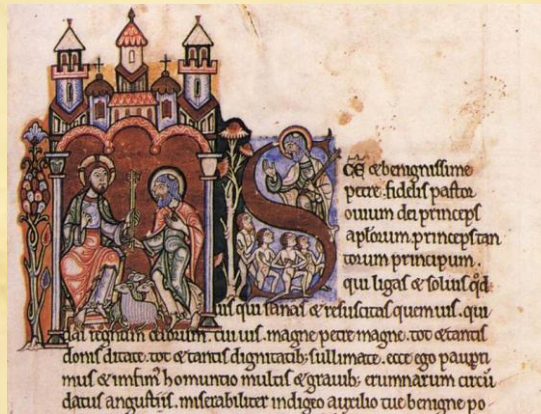 S
cẽ & benignissime
petre. fidelis pastor
ouium dei princeps
aplorum. princeps tan
torum principum.
qui ligas & soluis qđ
uis qui sanas & resuscitas quem uis. qui
das regnum celorum. cui uis. magne petre magne. tot & tantis
donis ditate. tot & tantis dignitatib; sullimate. ecce ego paupri
mus & infim' homuntio multis & grauib; erumnarum circũ
datus angustiis. miserabiliter indigeo auxilio tue benigne po